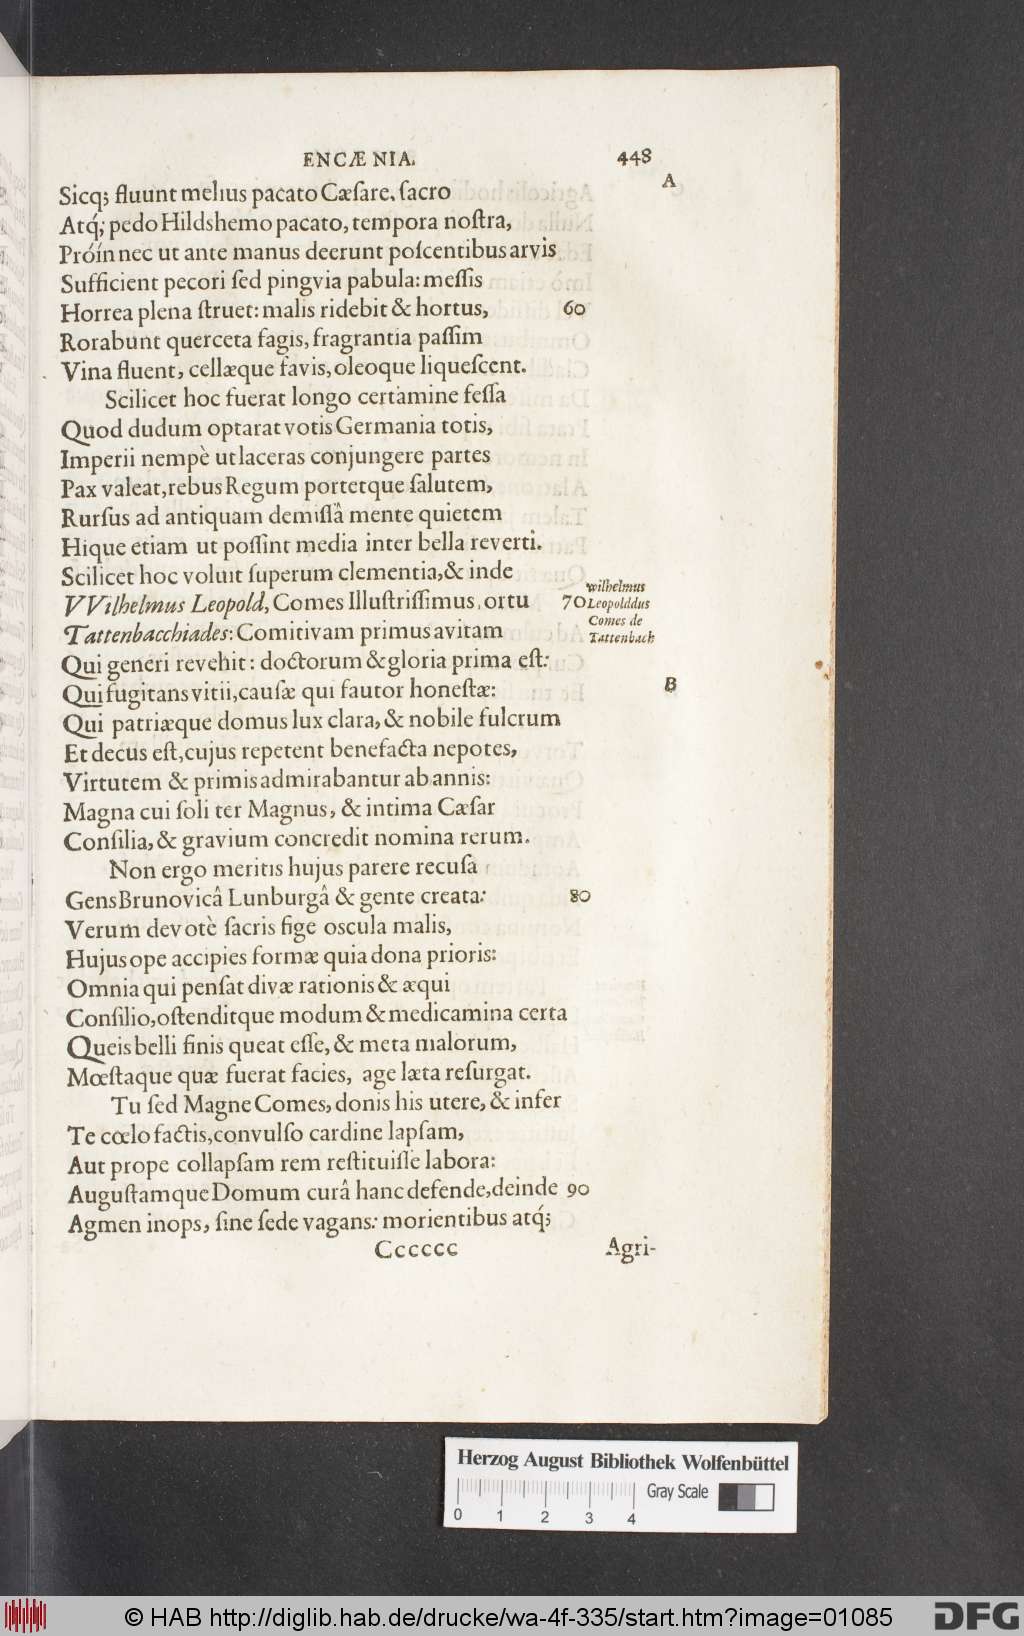 ENCÆNIA. 448
A
Sicq́; fluunt melius pacato Cæſare, ſacro
Atq́; pedo Hildshemo pacato, tempora noſtra,
Próín nec ut ante manus deerunt poſcentibus arvis
Sufficient pecori ſed pingvia pabula: meſſis
Horrea plena ſtruet: malis ridebit & hortus, 60
Rorabunt querceta fagis, fragrantia paſſim
Vina fluent, cellæque favis, oleoque liqueſcent.
Scilicet hoc fuerat longo certamine feſſa
Quod dudum optarat votis Germania totis,
Imperii nempè ut laceras conjungere partes
Pax valeat, rebus Regum portetque ſalutem,
Rurſus ad antiquam demiſſâ mente quietem
Hique etiam ut poſſint media inter bella reverti.
Scilicet hoc voluit ſuperum clementia, & inde
VVilhelmus Leopold, Comes Illuſtriſſimus, ortu 70
Wilhelmus
Leopolddus
Comes de
Tattenbach
Tattenbacchiades: Comitivam primus avitam
Qui generi revehit: doctorum & gloria prima eſt:
Qui fugitans vitii, cauſæ qui fautor honeſtæ: B
Qui patriæque domus lux clara, & nobile fulcrum
Et decus eſt, cujus repetent benefacta nepotes,
Virtutem & primis admirabantur ab annis:
Magna cui ſoli ter Magnus, & intima Cæſar
Conſilia, & gravium concredit nomina rerum.
Non ergo meritis hujus parere recuſa
Gens Brunovicâ Lunburgâ & gente creata: 80
Verum devotè ſacris fige oscula malis,
Hujus ope accipies formæ quia dona prioris:
Omnia qui penſat divæ rationis & æqui
Conſilio, oſtenditque modum & medicamina certa
Queis belli finis queat eſſe, & meta malorum,
Mœſtaque quæ fuerat facies, age læta reſurgat.
Tu ſed Magne Comes, donis his utere, & infer
Te cœlo factis, convulſo cardine lapſam,
Aut prope collapſam rem reſtituiſſe labora:
Auguſtamque Domum curâ hanc defende, deinde 90
Agmen inops, ſine ſede vagans: morientibus atq́;
Cccccc Agri-
Herzog August Bibliothek Wolfenbüttel
Gray Scale
0 1 2 3 4
© HAB http://diglib.hab.de/drucke/wa-4f-335/start.htm?image=01085
DFG